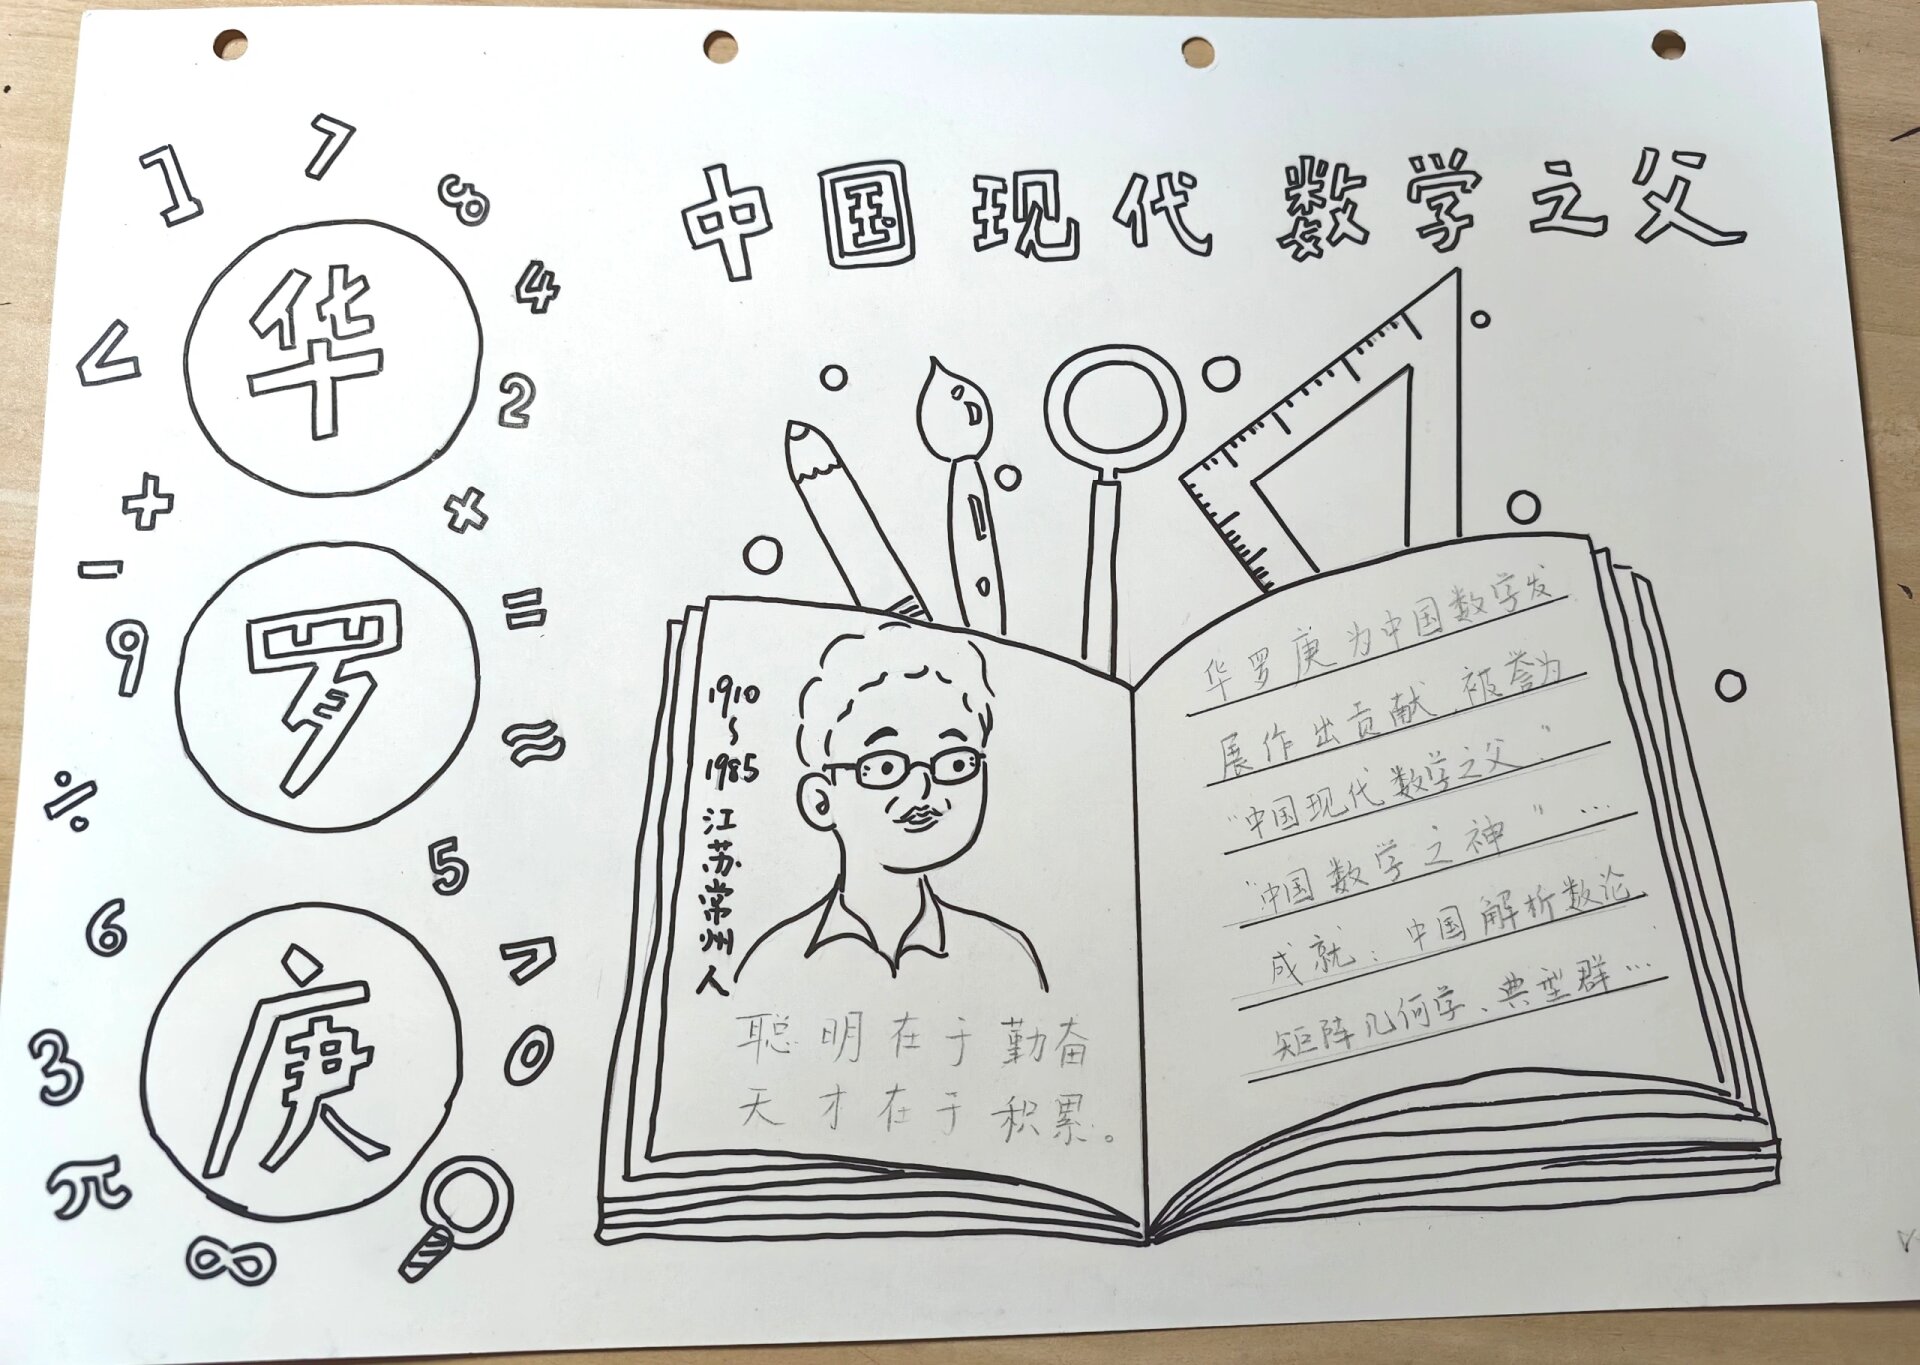 中国现代数学之父
华
罗
庚
1 7 8
4
<
2
+ ×
-
=
9
≈
÷
5
6
>
3
0
π
∞
1910
~
1985
江苏常州人
聪明在于勤奋
天才在于积累。
华罗庚为中国数学发
展作出贡献,被誉为
“中国现代数学之父”
“中国数学之神”…
成就：中国解析数论、
矩阵几何学、典型群…